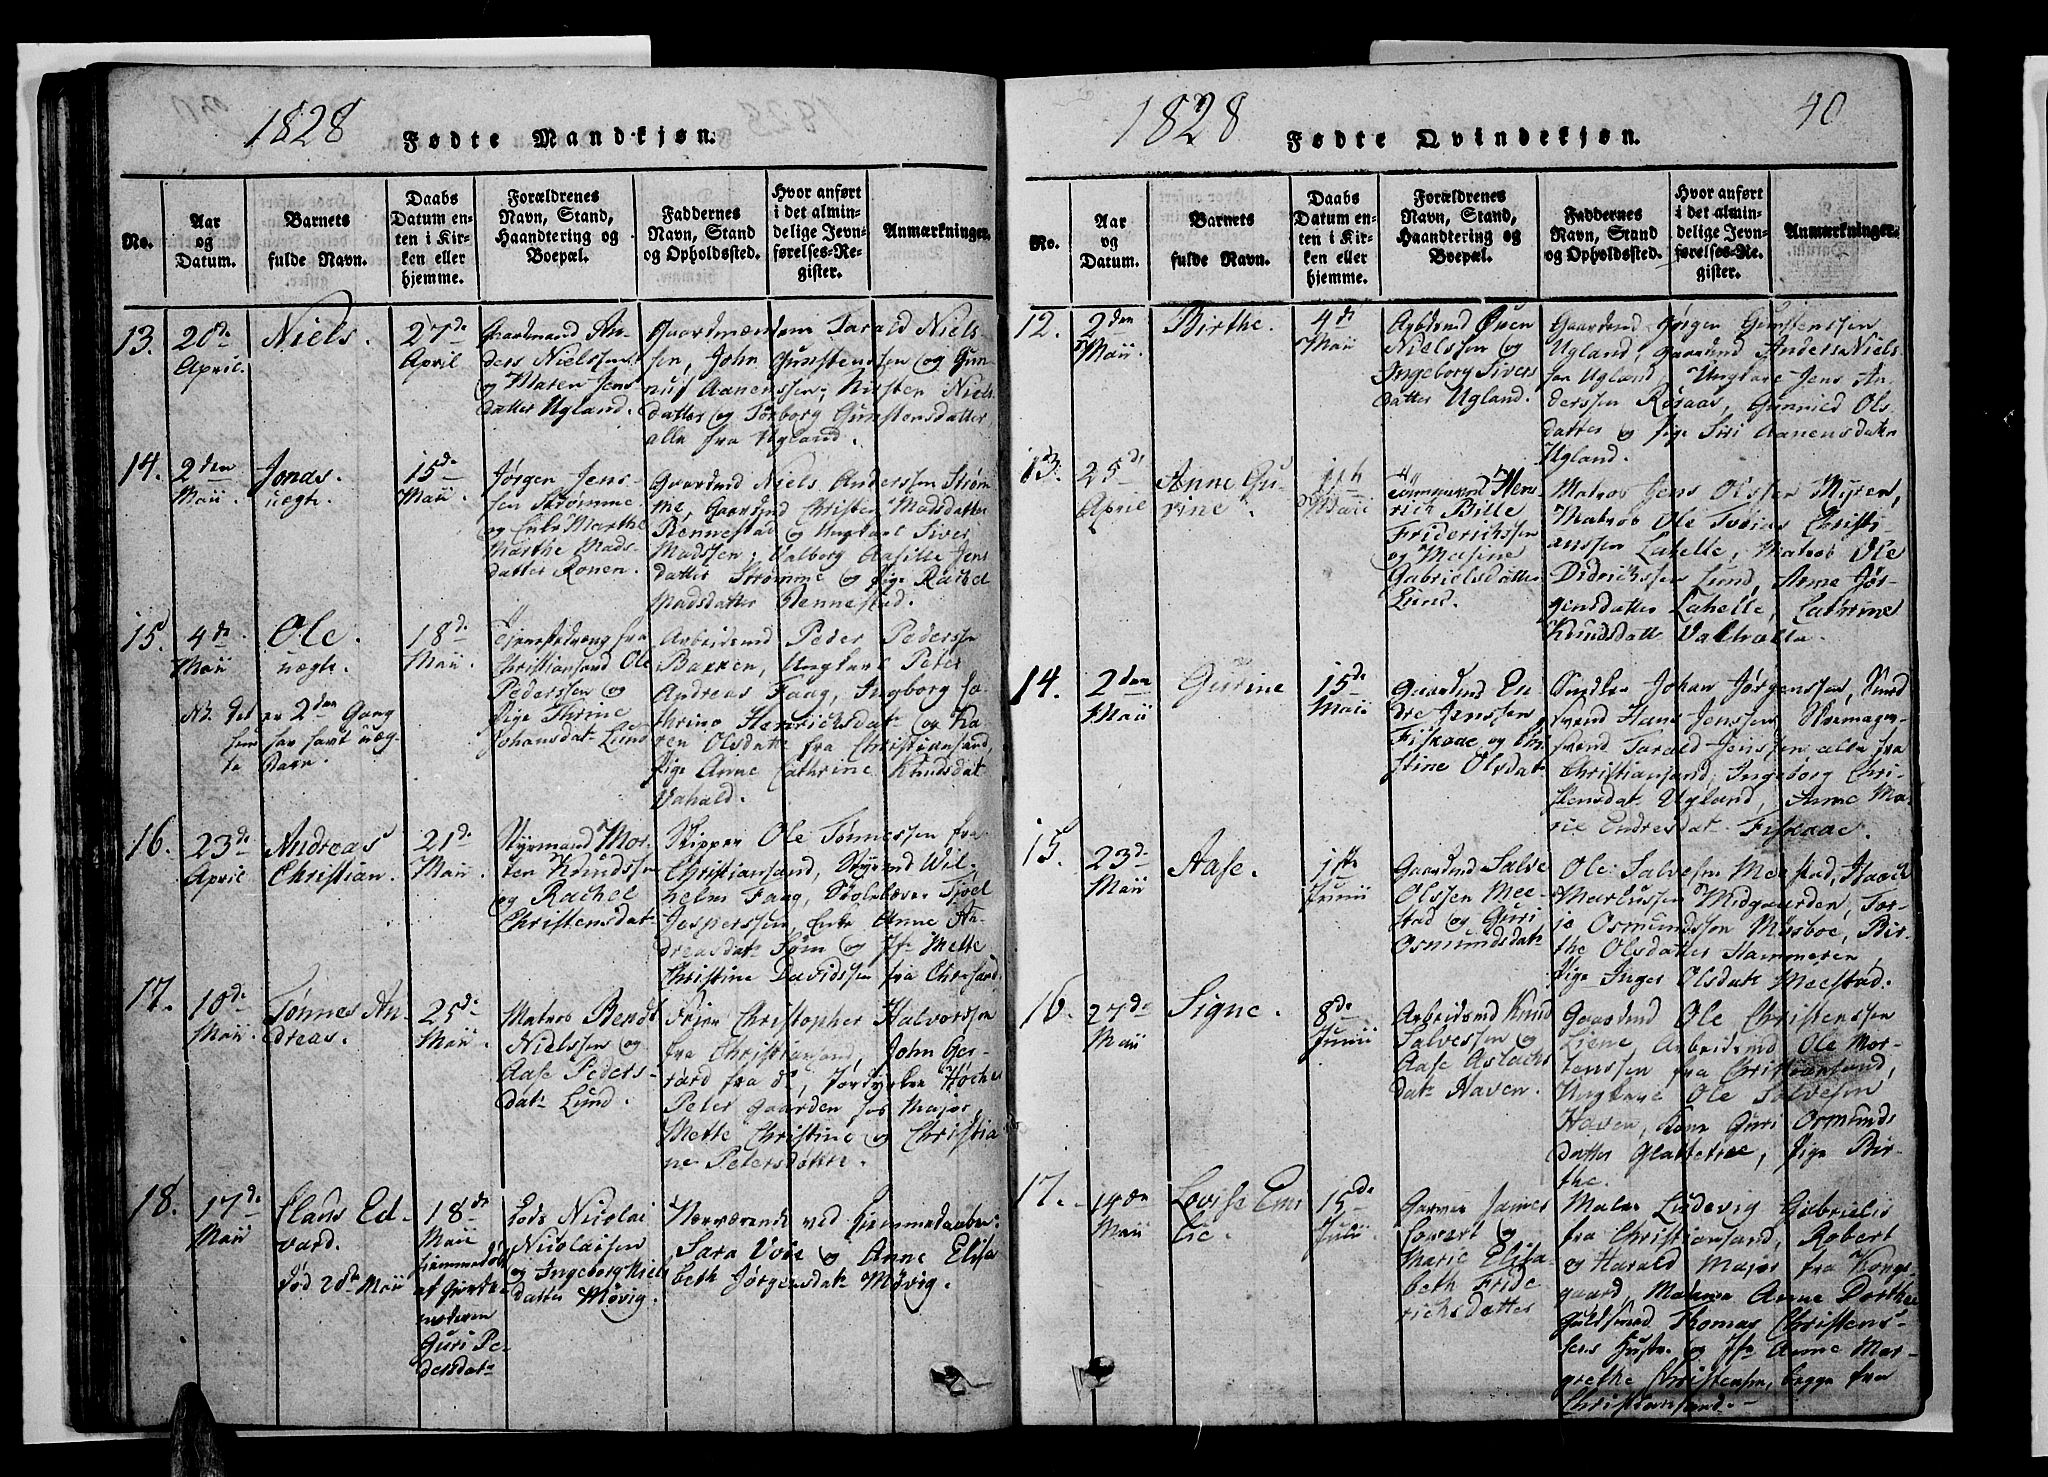 1828
Fødte Mandkjøn.
No.
Aar
og
Datum.
Barnets
fulde Navn.
Daabs
Datum en-
ten i Kir-
ken eller
hjemme.
Forældrenes
Navn, Stand,
Haandtering og
Boepæl.
Faddernes
Navn, Stand
og Opholdssted.
Hvor anført
i det almin-
delige Jevn-
førelses-Re-
gister.
Anmærkninger.
13.
20de
April.
Niels.
27de
April
Gaardmand An-
ders Nielssen
og Maren Jens
datter Ugland.
Gaardmændene Tarald Niels-
sen, John Gunstenssen og Gun-
nuf Aanenssen; Kirsten Niels
datter og Torborg Gunstensdatter
alle fra Ugland.
14.
2den
Maii.
Jonas.
uegte.
15de
Maii.
Jørgen Jens-
sen Strømme
og Enke Marthe
Marthe Mads-
datter Ronen.
Gaardmd Niels Anderssen Strøm-
me, Gaardmd Christen Madsdatter
Rennestad og Ungkarl Siver
Madssen; Valborg Jens
datter Strømme og Pige Rachel
Madsdatter Rennestad.
15.
4de
Maii
Ole.
uægte.
18de
Maii.
Tjenestedreng fra
Christiansand Ole
Pederssen og
Pige Thrine
Johansdatr Lund
Arbeidsmd Peder Pederssen
Bakken, Ungkarl Peter
Andreas Faag, Ingborg Ca-
thrine Henrichsdatr og Ka-
ren Olsdatr fra Christiansand
Pige Anne Cathrine Knudsdatr
Vahald.
NB. det er 2den Gang
hun har havt uæg-
te Barn.
16.
23de
April
Andreas
Christian.
21de
Maii.
Styrmand Mor-
ten Knudssen
og Rachel
Christensdatr
Skipper Ole Tønnessen fra
Christiansand, Styrmd Wil-
helm Faag, Skolelærer Tjoel
Jesperssen, Enke Anne An-
dreasdatr Søm og Jfr Mette
Christine Davidssen fra Chrsand.
17.
10de
Maii.
Tønnes An-
dreas.
25de
Maii.
Matros Bendt
Nielssen og
Aase Peders-
datr Lund.
Christopher Halvorssen
fra Christiansand, John Ger-
rard fra do,
Peter Gaarden, hos Major
Mette Christine og Christia
ne Petersdøttre.
18.
17de
Maii
Claus Ed-
vard.
død 20de Maii
18de
Maii
hjemmedøbt
af Gjorde-
moderen
Guri Pe-
dersdatr
Lods Nicolai
Nicolaisen
og Ingeborg Niels
datter Møvig.
Nærværende ved Hjemmedaaben:
Sara Voie og Anne Elisa
beth Jørgensdatr Møvig.
1828
Fødte Qvindekjøn.
40
No.
Aar
og
Datum.
Barnets
fulde Navn.
Daabs
Datum en-
ten i Kir-
ken eller
hjemme.
Forældrenes
Navn, Stand,
Haandtering og
Boepæl.
Faddernes
Navn, Stand
og Opholdssted.
Hvor anført
i det almin-
delige Jevn-
førelses-Re-
gister.
Anmærkninger.
12.
2den
Maii
Birthe.
4de
Maii
Arbdsmd Øven
Nielssen og
Ingeborg Sivers
datter Ugland.
Gaardmd Jørgen Gunstenssen
Ugland, Gaardmd Anders Niels
sen Ugland Ungkarl Jens An-
derssen Rosaas, Gunnild Ols-
datter og Pige Siri Aanensdatter
Ugland.
13.
25de
April
Anne Gu-
rine.
Maii
Tømmermd Hen-
rich Bille
Friderichssen
og Masine
Gabrielsdatter
Lund.
Matros Jens Olssen Myren,
Matros Ole Tobias Christi-
anssen Lahelle, Matros Ole
Didrichssen Lund, Anne Jør-
gensdatter Lahelle, Cathrine
Knudsdatr Valhalla.
14.
2den
Maii
Gurine
15de
Maii
Gaardmd En-
dre Jenssen
Fiskaae og
stine Olsdatr
Snedker Johan Jørgenssen, Smed
svend Hans Jenssen Skomager-
svend Tarald Jenssen, alle fra
Christiansand; Ingeborg Chri-
stensdatr Ugland, Anne Ma-
rie Endresdatr Fiskaae.
15.
23de
Maii
Aase.
1ste
Junii
Gaardmd Salve
Olssen Mee-
stad og Guri
Osmundsdatr
Ole Salvesen Meestad,
Markussen Midgaarden, Tor-
je Osmundssen Mosboe, Bir-
the Olsdatter Hammeren,
Pige Inger Olsdatr Meestad.
16.
27de
Maii
Signe.
8de
Junii
Arbeidsmd Knud
Salvessen og
Aase Aslachs
datr Haven.
Gaardmd Ole Christenssen
Liene, Arbeidsmd Ole Mor-
tenssen fra Christiansand,
Ungkarl Ole Salvesen
Haven, Kone Guri Osmunds
datter Glattetree, Pige Bir-
the.
17.
14de
Maii
Lovise Emi
lie.
15de
Junii
Garver James
Marie Elisa-
beth Fride
richsdatter
Maler Ludevig Gabrielli
fra Christiansand, Robert
og Harald Major fra Kongs
gaard, Madame Anne Dorthea
Guldsmed Thomas Christens-
sens Hustr. og Jfr Anne Mar-
grethe Christensen, begge fra
Christiansand.